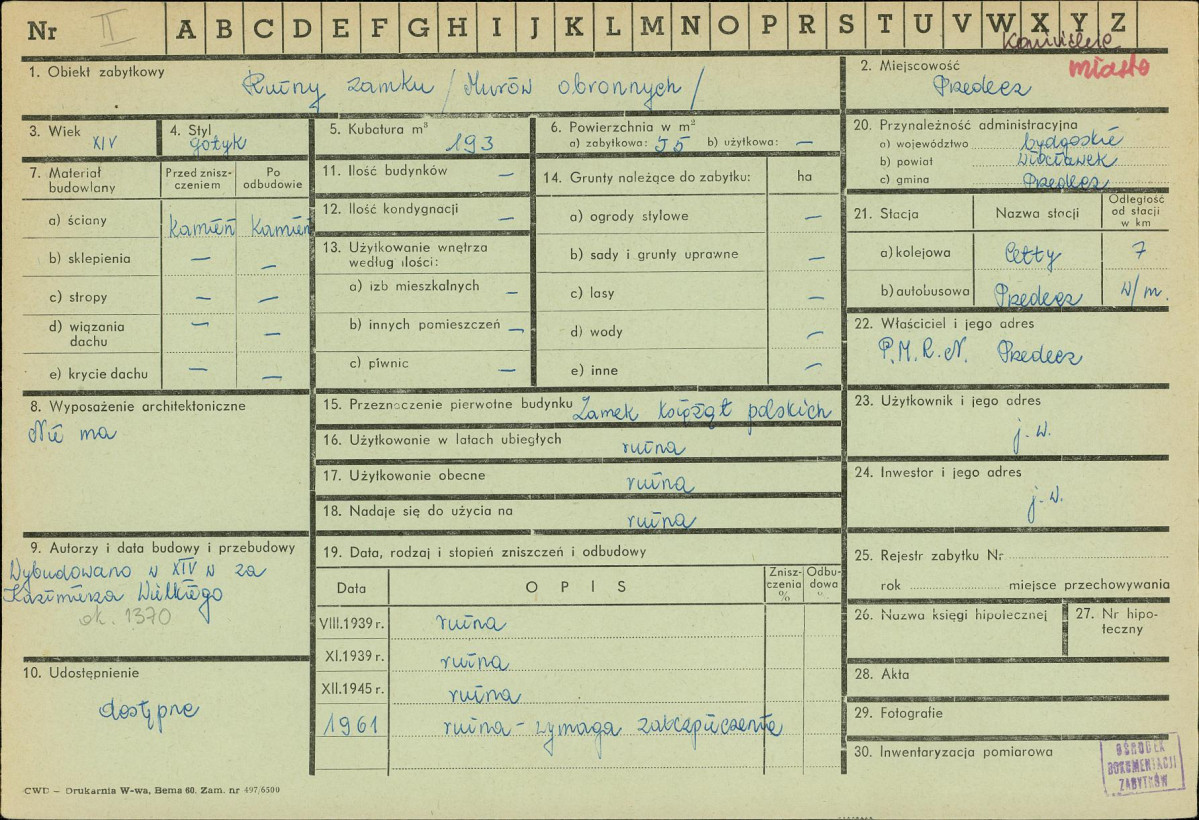 Nr II A B C D E F G H I J K L M N O P R S T U V W X Y Z
miasto
1. Obiekt zabytkowy
Ruiny zamku /Murów obronnych/
2. Miejscowość
Przedecz
3. Wiek
XIV
4. Styl
gotyk
5. Kubatura m³
193
6. Powierzchnia w m²
a) zabytkowa: 55 b) użytkowa: —
20. Przynależność administracyjna
a) województwo bydgoskie
b) powiat Włocławek
c) gmina Przedecz
7. Materiał budowlany
Przed znisz-
czeniem
Po
odbudowie
a) ściany kamień kamień
b) sklepienia — —
c) stropy — —
d) wiązania
dachu — —
e) krycie dachu — —
11. Ilość budynków —
12. Ilość kondygnacji —
13. Użytkowanie wnętrza
według ilości:
a) izb mieszkalnych —
b) innych pomieszczeń —
c) piwnic —
14. Grunty należące do zabytku: ha
a) ogrody stylowe —
b) sady i grunty uprawne —
c) lasy —
d) wody —
e) inne —
21. Stacja Nazwa stacji
Odległość
od stacji
w km
a) kolejowa 7
b) autobusowa Przedecz w/m.
22. Właściciel i jego adres
P.M.R.N. Przedecz
8. Wyposażenie architektoniczne
Nie ma
15. Przeznaczenie pierwotne budynku Zamek książąt polskich
16. Użytkowanie w latach ubiegłych ruina
17. Użytkowanie obecne ruina
18. Nadaje się do użycia na ruina
23. Użytkownik i jego adres
j.w.
24. Inwestor i jego adres
j.w.
9. Autorzy i data budowy i przebudowy
Wybudowano w XIV w za
Kazimierza Wielkiego
ok. 1370
19. Data, rodzaj i stopień zniszczeń i odbudowy
Data OPIS
Znisz-
czenia
%
Odbu-
dowa
%
VIII.1939 r. ruina
XI.1939 r. ruina
XII.1945 r. ruina
1961 ruina - wymaga zabezpieczenia
25. Rejestr zabytku Nr
rok miejsce przechowywania
26. Nazwa księgi hipotecznej
27. Nr hipo-
teczny
10. Udostępnienie
dostępne
28. Akta
29. Fotografie
30. Inwentaryzacja pomiarowa
OŚRODEK
DOKUMENTACJI
ZABYTKÓW
CWD — Drukarnia W-wa, Bema 60. Zam. nr 497/6500